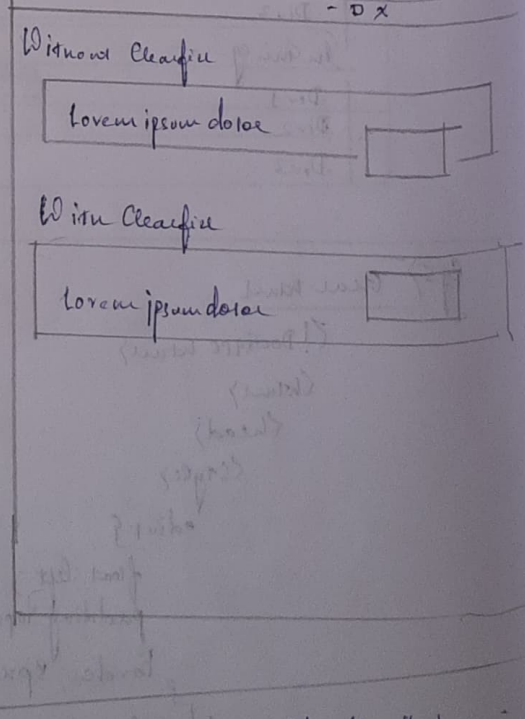 - D X
Without Clearfix
Lorem ipsum dolor
With Clearfix
Lorem ipsum dolor